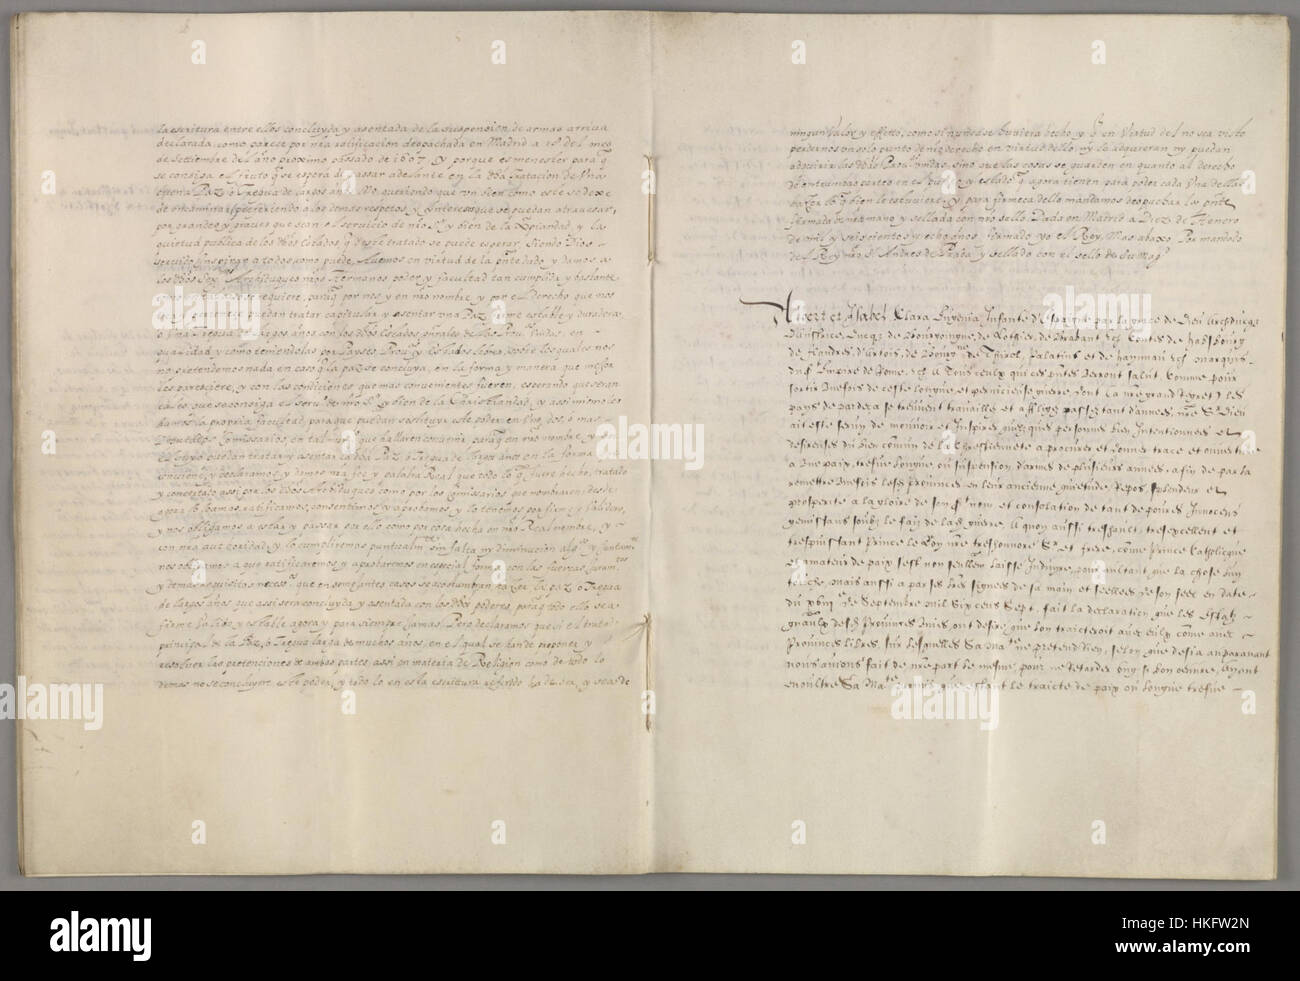 la escritura entre ellos concluyda y asentada de la suspension de armas arriva
declarada, como parece por nra ratificacion despachada en Madrid a del mes
de Settiembre del año proximo passado de 1607 Y porque es menester para q̃
se consiga el fruto q̃ se espera de passar adelante en la tratacion de Una
Paz, o Tregua de largos años. queriendo que Un bien como este se dexe
de encaminar, prefiriendo a los demas respetos, y Interesses que se puedan atravesar,
por grandes y graves que sean el servicio de nro Sr y bien de la Xpiandad, y la
quietud publica de los Estados q̃ deste tratado se puede esperar, siendo Dios
servido Inspirar a todos como puede, Avemos en virtud de la pnte dado y damos a
los Archiduques nros Hermanos poder y facultad tan cumplida y bastante
como se requiere, paraq̃ por nos y en nro nombre y por el Derecho que nos
puedan tratar capitular y asentar una Paz firme estable y duradera
o Una Tregua de largos años con los Estados generales de las Prou.as Unidas, en
calidad y como teniendolas por Payses, Prou.as y Estados libres, sobre los quales nos
no pretendemos nada en caso q̃ la paz se concluya, en la forma y manera que mejor
les pareciere, y con las condiciones que mas convenientes fueren, esperando que seran
tales que se consiga el seru.o de nro Sr y bien de la Christiandad, y assimismo les
damos la propria facultad, para que puedan sostituyr este poder en Uno, dos, o mas
Diputados, o Comissarios, en tal que hallaren convenir paraq̃ en nro nombre, y
suyo puedan tratar y asentar la Paz, o Tregua de largos años en la forma q̃
conviene, y declaramos y damos nra fe y palabra Real que todo lo q̃ fuere hecho, tratado
y concertado assi por los Archiduques como por los Comissarios que nombraren, desde
agora lo loamos, ratificamos, consentimos y aprobamos, y lo tenemos por firme y valedero,
y nos obligamos a estar y passar por ello como por cosa hecha en nro Real nombre, y
con nra authoridad, y lo cumpliremos puntualm.te sin falta ny diminucion alg.a y juntam.te
nos obligamos a que ratificaremos y aprobaremos en especial forma con las fuerças juram.tos
y demas requisitos necess.os que en semejantes casos se acostumbran la Paz, o Tregua
de largos años que assi sera concluyda y asentada con los poderes, paraq̃ todo ello sea
firme Valido, y estable agora y para siempre jamas. Pero declaramos que si el tratado
principal de la Paz, o Tregua larga de muchos años, en el qual se han de proponer y
resolver las pretenciones de ambas partes assi en materia de Religion como de todo lo
demas no se concluyere, este poder, y todo lo en esta escritura referido ha de ser, y sea de
ningun Valor y effetto, como si nunca se huviera hecho, y q̃ en Virtud del no sea visto
perdernos un solo punto de nro derecho en virtud dello, ny le adquieran ny puedan
adquirir las Prou.as Unidas, sino que las cosas se queden en quanto al derecho
de entrambas partes en el Punto, y estado q̃ agora tienen para poder cada Una dellas
hazer lo q̃ bien le estuviere, y para firmeza dello mandamos despachar la pnte
firmada de nra mano y sellada con nro sello. Dada en Madrid a Diez de Henero
de mil y seiscientos y ocho años. Firmado, yo el Rey, Mas abaxo, Por mandado
del Rey nro Sr Andres de Prada, y sellado con el sello de su Mag.d
Albert et Ysabel Clara Eugenia Infante d'Espaigne par la grace de Dieu Archiducqz
d'Austrice, Ducqz de Bourgoingne, de Lothier, de Brabant Contes de Habsbourg
de Flandres, d'Artois, de Bourg.ne de Thirol, Palatins et de Haynnau Marquis
du St Empire de Rome, A Tous ceulx qui ces pntes verront salut. Comme pour
sortir Unefois de ceste longue et pernicieuse guerre, dont a nre grand regret les
pays de pardeça se treuvent travaillez et affligez passez tant d'annees, nre Sr Dieu
ait esté seruy de mouvoir et Inspirer quelques personnes bien Intentionnees et
desireuses du bien commun de la Chrestienneté a procurer et donner trace et ouverture
a Une paix, trefue longue ou suspension d'armes de plusieurs annees, afin de par la
remettre Unefois les Provinces en leur ancienne quietude, Repos, splendeur et
prosperité a la gloire de son St nom et consolation de tant de povres Innocens
gemissans soubz le faiz de la guerre, A quoy aussi treshault, tresexcellent et
trespuissant Prince le Roy nre treshonnoré Sr et frere, come Prince Catholicque
et amateur de paix s'est non seullem.t laissé Induyre, pour aultant que la chose luy
touche, mais aussi a par ses lres signees de sa main et seellees de son seel en date
du xviii.e de Septembre mil six cens sept, fait la declaration, que les Estatz
gnaulx des Provinces Unies ont desiré, que l'on traicteroit avec eulx come avec
Provinces libres, sur lesquelles Sa Ma.té ne pretend rien, selon que desia auparavant
nous avions fait de nre part le mesme, pour ne retarder Ung si bon oeuvre, Ayant
en oultre Sa Ma.té que estant le traicté de paix ou longue trefue